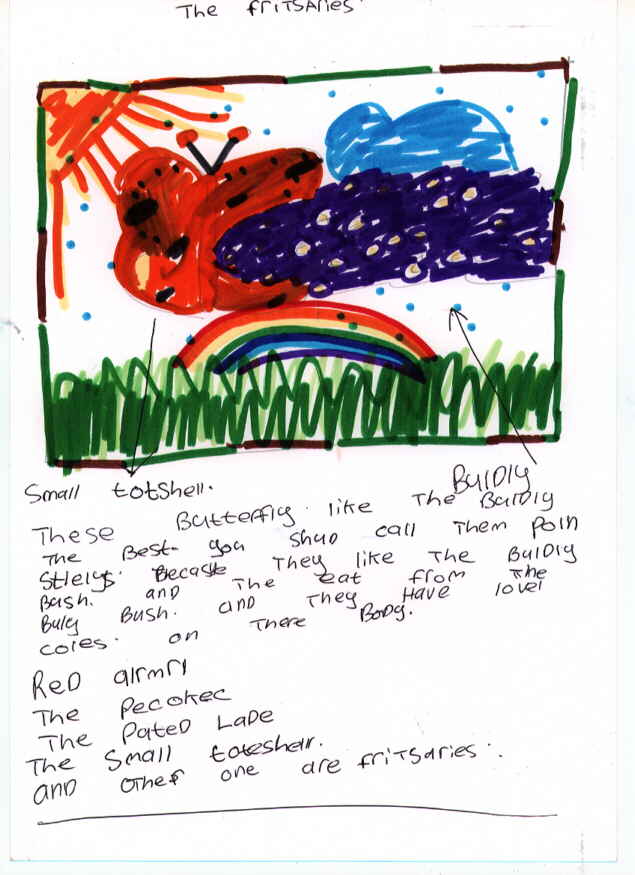 The fritsaries
Small totshell.
BulDly
These Butterfly. like The BulDly
The Best. you shud call Them poln
Stlelys. Becase They like The BulDly
Bush. and The eat from The
Buly Bush. and They Have lovel
coles. on There Body.
Red aIrmrl
The Pecokec
The Pated Lade
The Small toteshell.
and other one are fritsaries.